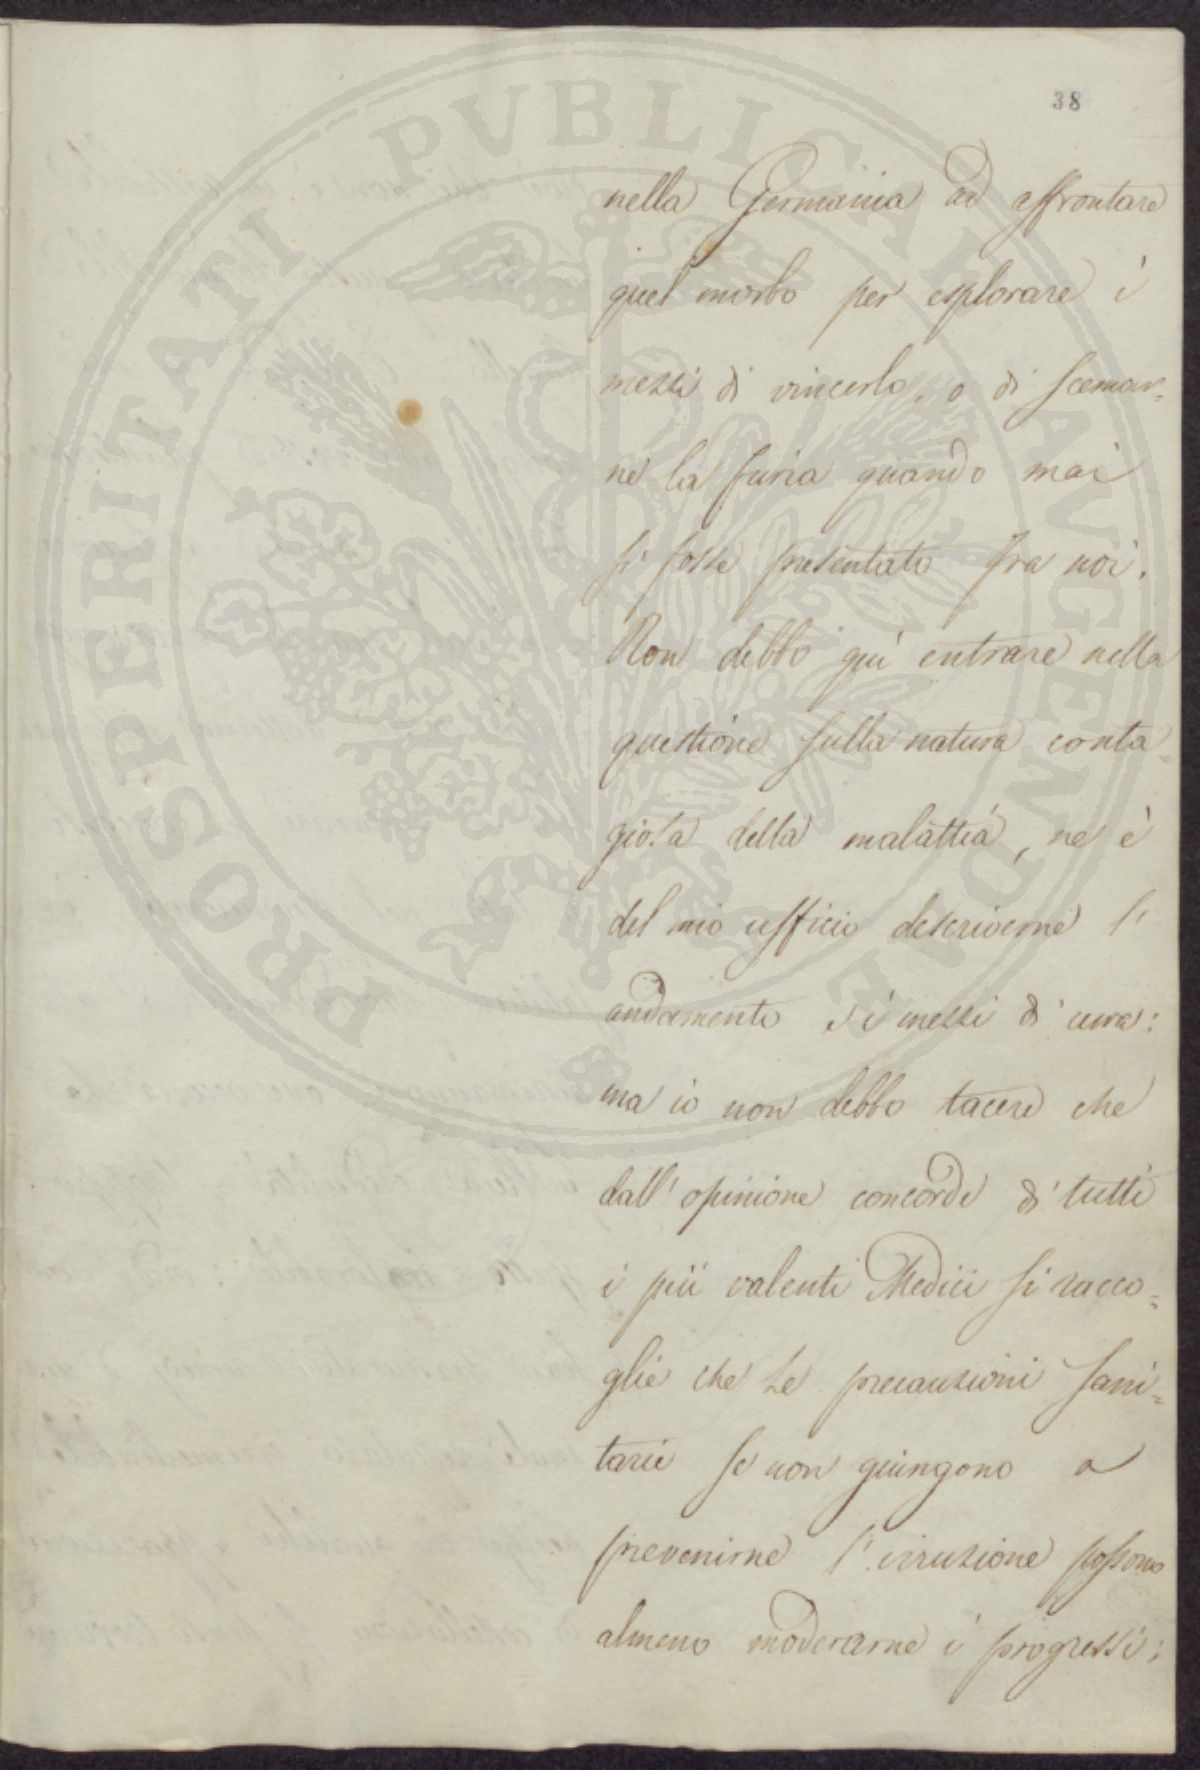 38
nella Germania ad affrontare
quel morbo per esplorare i
mezzi di vincerlo, o di scemar=
ne la furia quando mai
si fosse presentato fra noi.
Non debbo quì entrare nella
questione sulla natura conta=
giosa della malattia, ne è
del mio ufficio descriverne l'
andamento e i mezzi di cura:
ma io non debbo tacere che
dall'opinione concorde di tutti
i più valenti Medici si racco=
glie che le precauzioni sani=
tarie se non giungono a
prevenirne l'irruzione possono
almeno moderarne i progressi;
PROSPERITATI PUBLICAE AUGENDAE